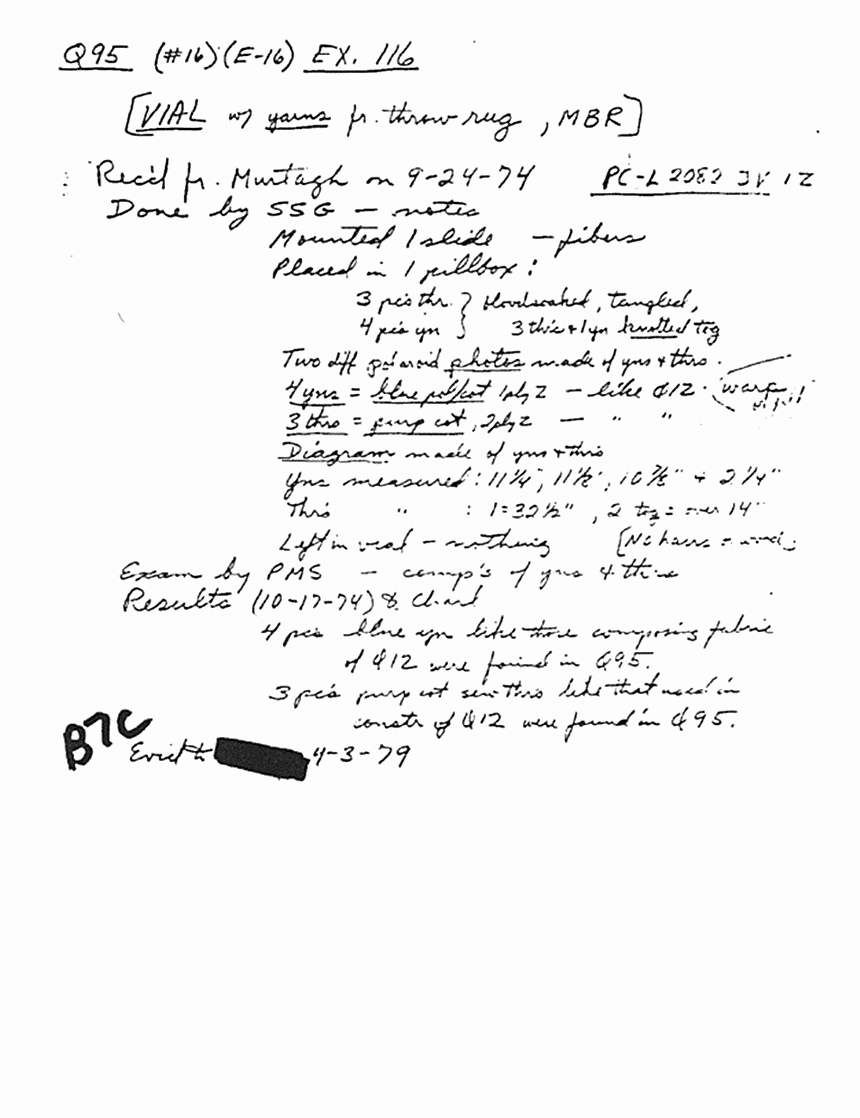 Q95 (#16) (E-16) EX. 116
[VIAL w/ yarns fr. throw rug, MBR]
Rec'd fr. Murtagh on 9-24-74 PC-L 2082 JV 1Z
Done by SSG — notes
Mounted 1 slide — fibers
Placed in 1 pillbox:
3 pc's thr. } bloodsoaked, tangled,
4 pc's yn } 3 th's + 1 yn knotted tog
Two diff polaroid photos made of yns + thrs.
4 yns = blue pol/cot 1ply Z — like Q12. warp
3 thrs = purp cot, 2ply Z — " "
Diagram made of yns + thrs
Yns measured: 11 1/4", 11 1/2", 10 7/8" + 2 1/4"
Thrs " : 1=32 1/2", 2 tog = over 14"
Left in vial — nothing [No hairs
Exam by PMS — comp's of yns & thrs
Results (10-17-74) & Chart
4 pcs blue yn like those composing fabric
of Q12 were found in Q95.
3 pc's purp cot sew thrs like that used in
constr of Q12 were found in Q95.
B7C
Evid to 4-3-79